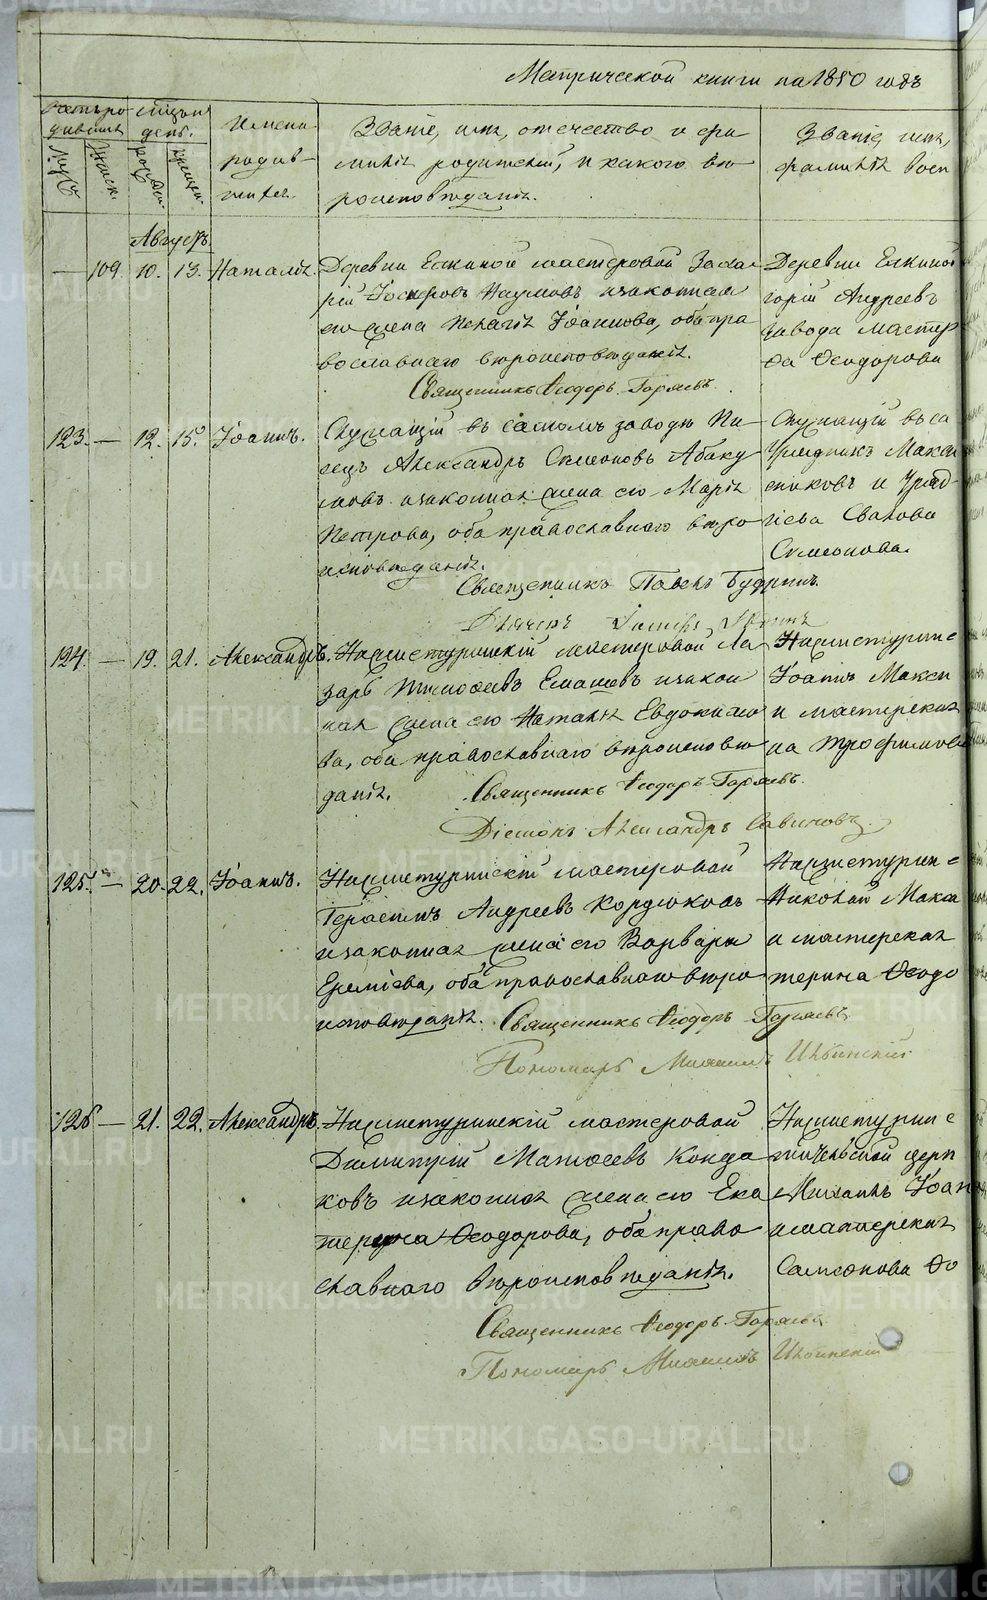 Метрической книги на 1850 годъ
Счетъ ро
дившихся
Мѣсяцъ и
день.
Имена
родив-
шихся.
Званіе, имя, отечество и фа
милія родителей, и какого вѣ
роисповѣданія.
Званіе, имя,
фамилія восп
Мужск.
Женск.
рожден.
крещен.
Августъ
— 109. 10. 13. Наталія.
Деревни Елкиной мастеровой Заха
рій Іосифовъ Наумовъ и законная
его жена Пелагія Іоаннова, оба пра
вославнаго вѣроисповѣданія.
Священникъ Ѳеодоръ Горяевъ.
Деревни Елкиной
горій Андреевъ
завода мастер
ва Ѳеодорова
123. — 12. 15. Іоаннъ.
Служащій въ самомъ заводѣ Пи
сецъ Александръ Симеоновъ Абаку
мовъ и законная жена его Марія
Петрова, оба православнаго вѣро
исповѣданія.
Священникъ Павелъ Будринъ.
Служащій въ са
Урядникъ Макси
сенковъ и Уряд
гіева Сванова
Симеонова.
124. — 19. 21. Александръ.
Нижнетуринскій мастеровой Ла
зарь Тимоѳеевъ Елашевъ и закон
ная жена его Наталія Евдокимо
ва, оба православнаго вѣроисповѣ
данія.
Священникъ Ѳеодоръ Горяевъ.
Діаконъ Александръ Савичевъ.
Нижнетуринс
Іоаннъ Макси
и мастерская
на Трофимова
125. — 20. 22. Іоаннъ.
Нижнетуринскій мастеровой
Герасимъ Андреевъ Кордюковъ
и законная жена его Варвара
Еремѣева, оба православнаго вѣро
исповѣданія.
Священникъ Ѳеодоръ Горяевъ
Пономарь Михаилъ Ильинскій
Нижнетуринс
Николай Макси
и мастерская
терина Ѳеодо
126 — 21. 22. Александръ.
Нижнетуринскій мастеровой
Димитрій Матѳеевъ Конда
ковъ и законная жена его Ека
терина Ѳеодорова, оба право
славнаго вѣроисповѣданія.
Священникъ Ѳеодоръ Горяевъ
Пономарь Михаилъ Ильинскій
Нижнетуринс
церк
Михаилъ Іоан
и мастерская
Самсонова До
METRIKI.GASO-URAL.RU